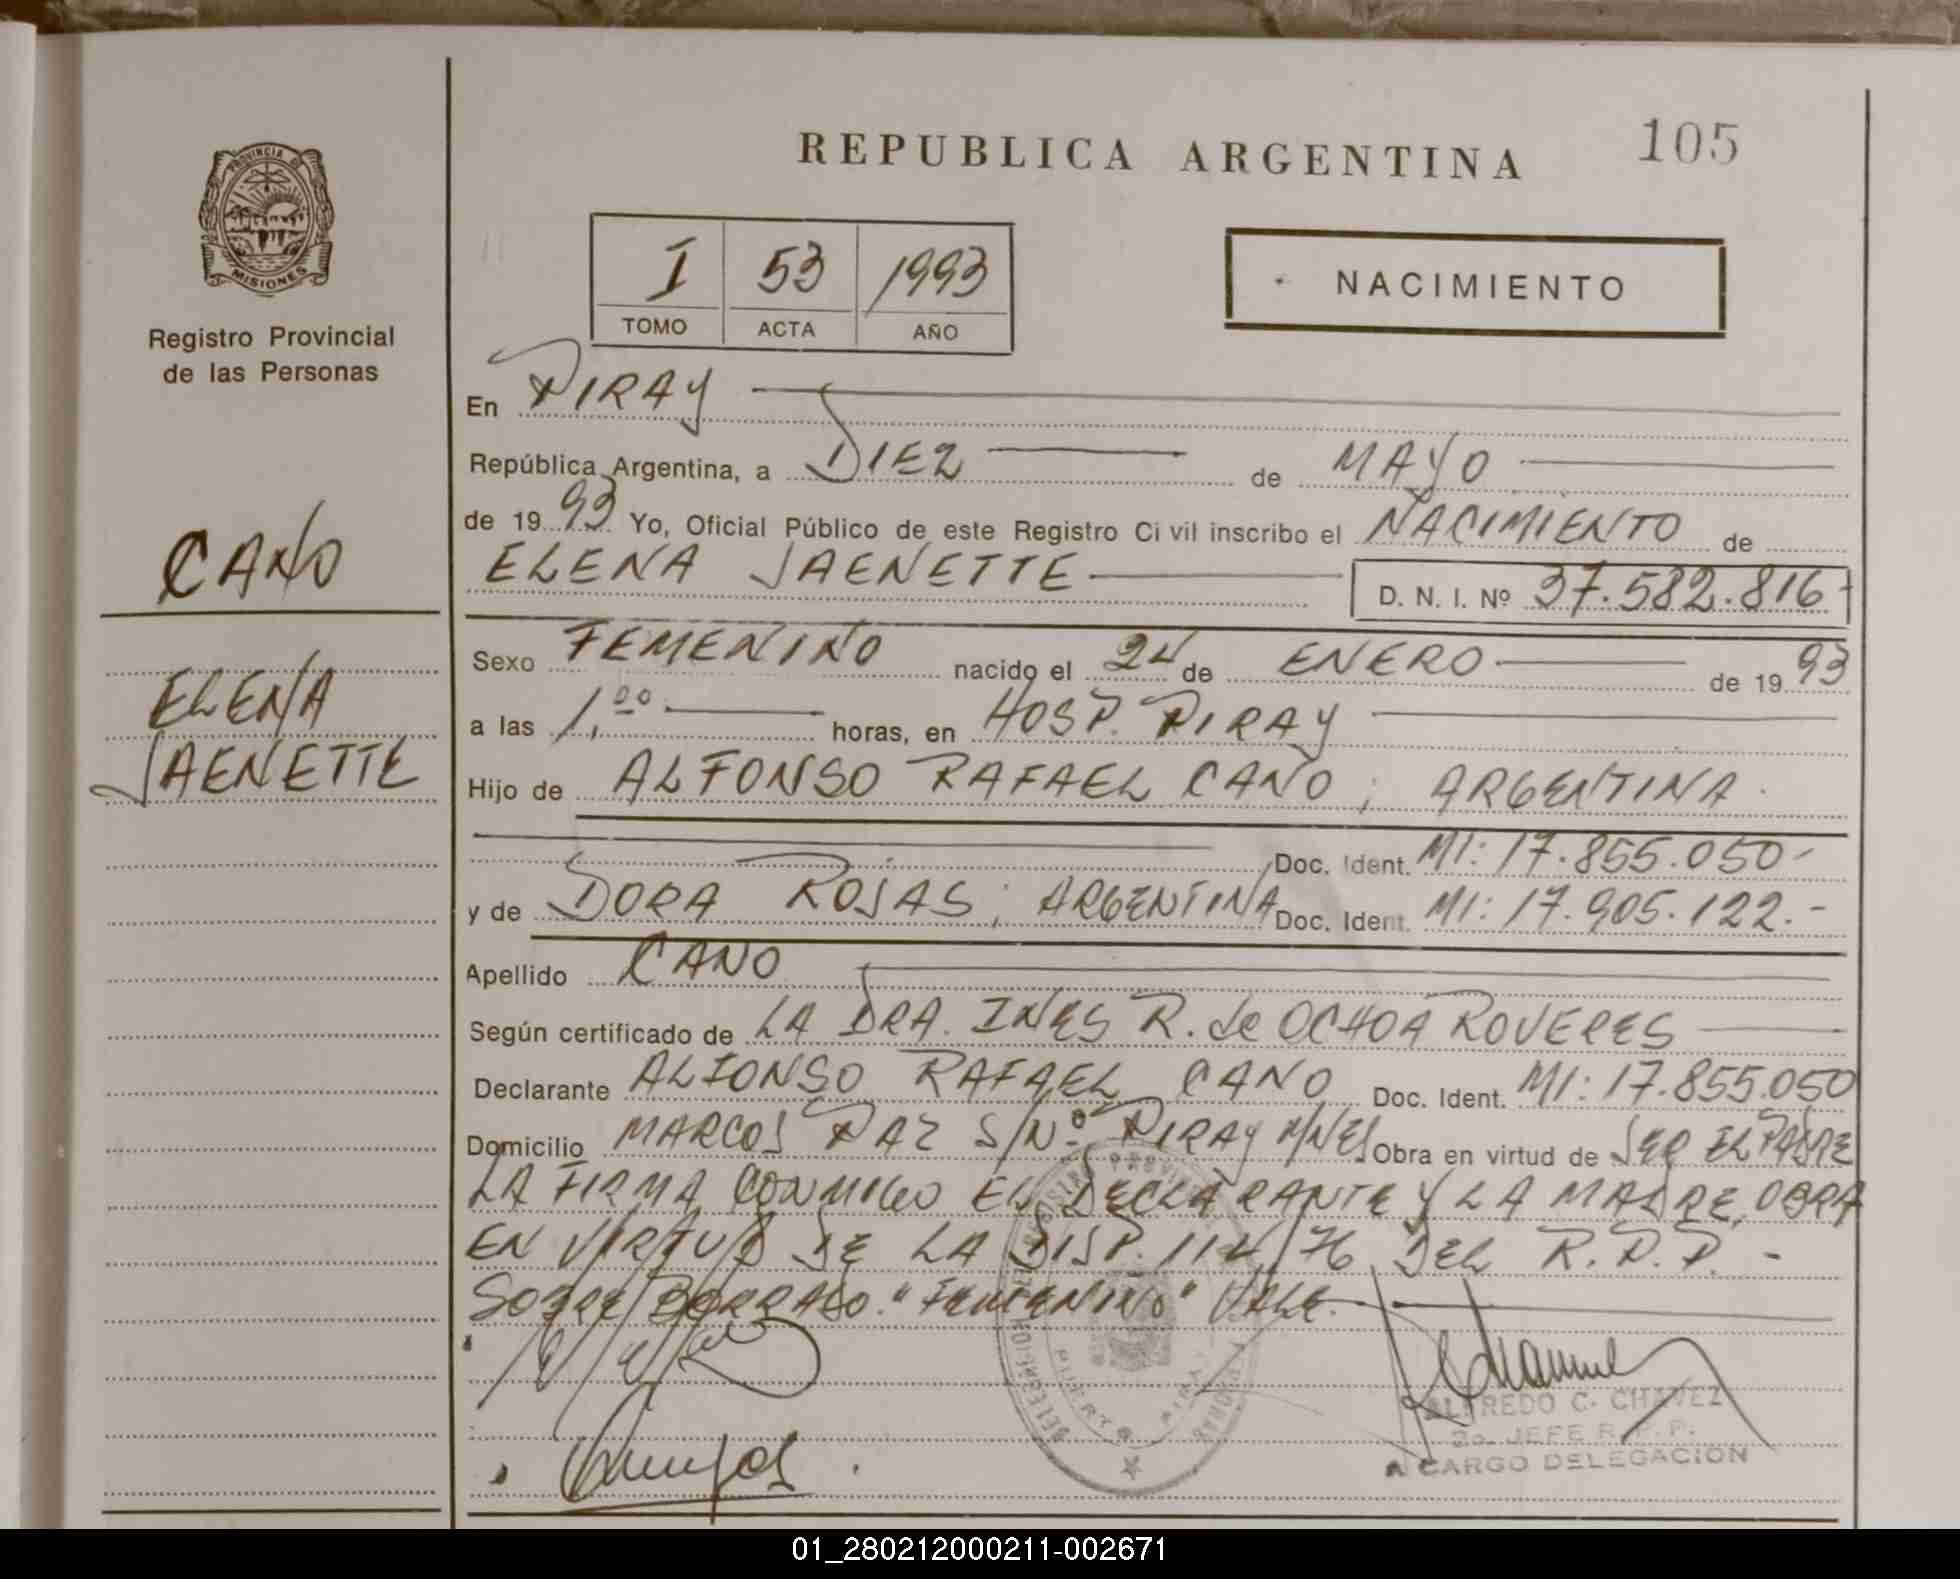 REPUBLICA ARGENTINA
105
PROVINCIA DE
MISIONES
Registro Provincial
de las Personas
CANO
ELENA
JAENETTE
I 53 1993
TOMO ACTA AÑO
NACIMIENTO
En PIRAY
República Argentina, a DIEZ de MAYO
de 1993 Yo, Oficial Público de este Registro Ci vil inscribo el NACIMIENTO de
ELENA JAENETTE D. N. I. Nº 37.582.816-
Sexo FEMENINO nacido el 24 de ENERO de 1993
a las 1,00 horas, en HOSP. PIRAY
Hijo de ALFONSO RAFAEL CANO; ARGENTINA.
Doc. Ident. MI: 17.855.050-
y de DORA ROJAS; ARGENTINA Doc. Ident. MI: 17.905.122.-
Apellido CANO
Según certificado de LA DRA. INES R. de OCHOA ROVERES
Declarante ALFONSO RAFAEL CANO Doc. Ident. MI: 17.855.050
Domicilio MARCOS PAZ S/Nº PIRAY MNES Obra en virtud de SER EL PADRE
LA FIRMA CONMIGO EL DECLARANTE Y LA MADRE, OBRA
EN VIRTUD DE LA DISP. 114/76 DEL R.P.P. -
SOBRE BORRADO "FEMENINO" VALE.
PUERTO PIRAY
ALFREDO C. CHAVEZ
2o. JEFE R. P. P.
A CARGO DELEGACION
01_280212000211-002671